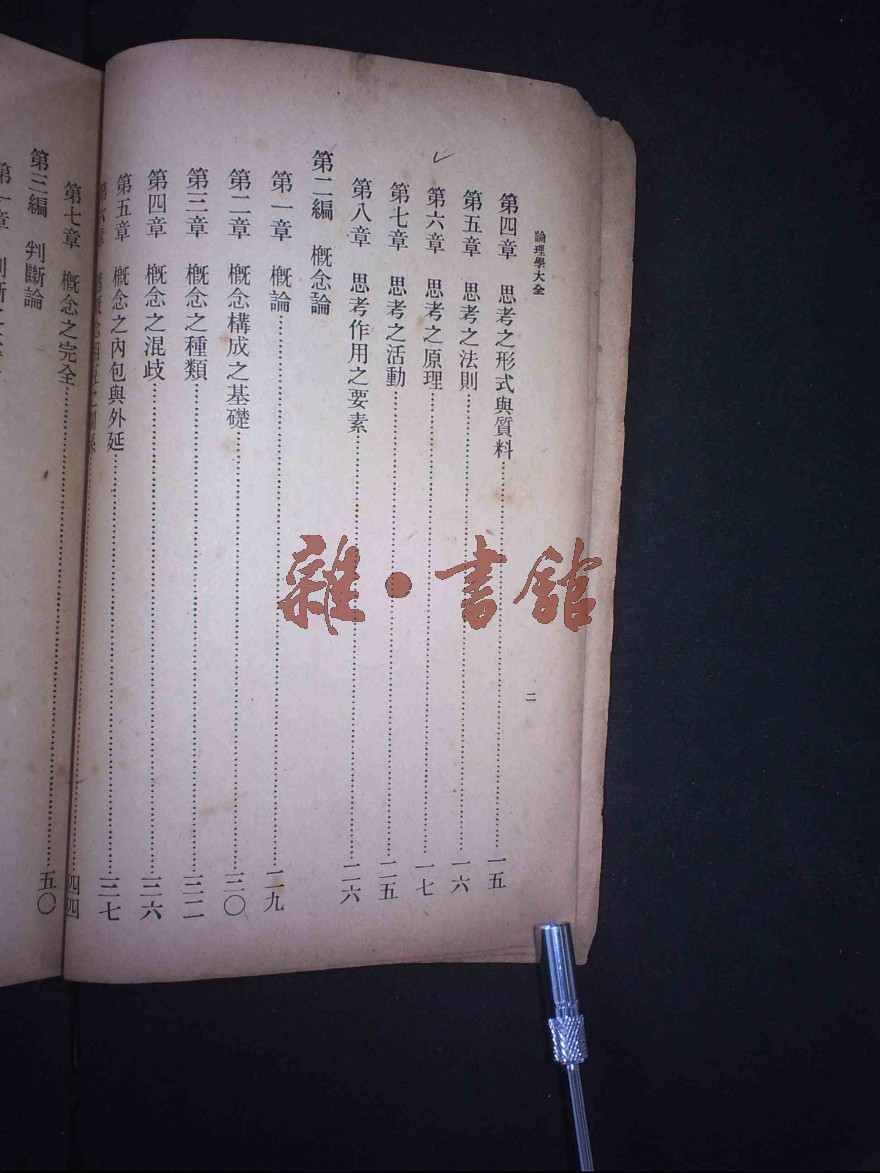 論理學大全
二
第四章 思考之形式與質料……一五
第五章 思考之法則……一六
第六章 思考之原理……一七
第七章 思考之活動……二五
第八章 思考作用之要素……二六
第二編 概念論
第一章 概論……二九
第二章 概念構成之基礎……三〇
第三章 概念之種類……三二
第四章 概念之混歧……三六
第五章 概念之內包與外延……三七
第六章……四四
第七章 概念之完全……五〇
第三編 判斷論
第一章
雜·書館